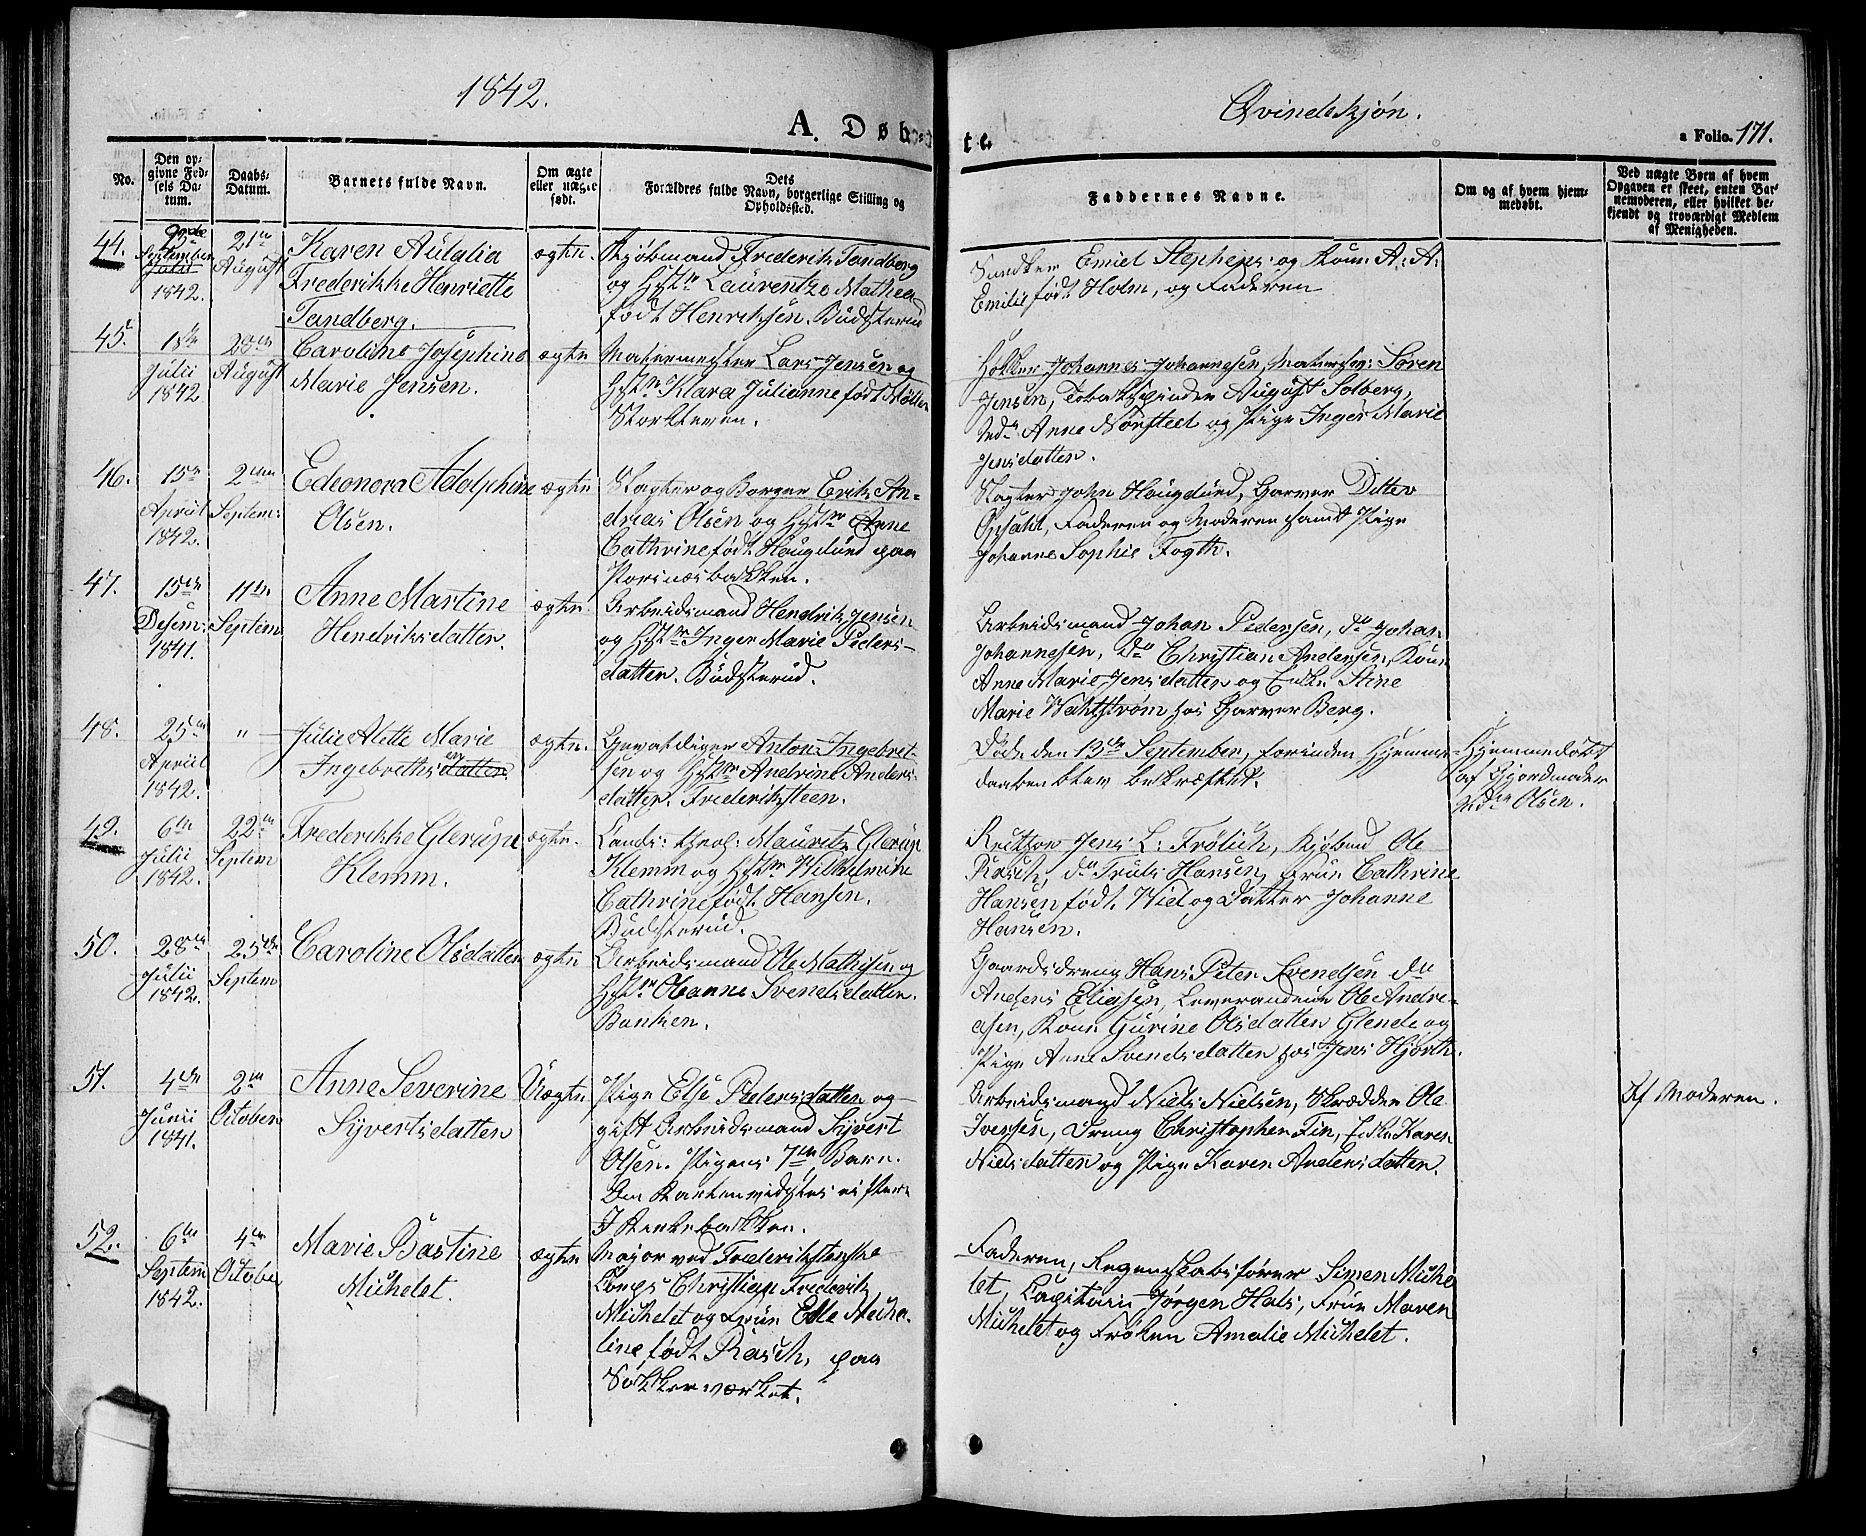 1842.
A. Døbte.
Qvindekjøn.
a Folio. 171.
No.
Den opgivne Fødsels Datum.
Daabs-Datum.
Barnets fulde Navn.
Om ægte eller uægte født.
Dets Forældres fulde Navn, borgerlige Stilling og Opholdssted.
Faddernes Navne.
Om og af hvem hjemmedøbt.
Ved uægte Børn af hvem Opgaven er skeet, enten Barnemoderen, eller hvilket bekjendt og troværdigt Medlem af Menigheden.
44.
September
Julii
1842.
21de
August
Karen Aulalia
Frederikke Henriette
Tandberg.
ægte.
Kjøbmand Frederik Tandberg
og Hstr Laurentze Mathea
født Henriksen. Budsterud
Emiel Stephens og Kone A: A:
Emilie født Holm, og Faderen
45.
18de
Julii
1842
28de
August
Caroline Josephine
Marie Jensen.
ægte
Malermester Lars Jensen og
Hstr Klara Julianne født Møller
Høkker Johannes Johannesen, Malersv: Søren
Jensen, Tobakspinder August Solberg,
Md: Anne Norsteet og Pige Inger Marie
Jensdatter.
46.
15de
April
1842.
2den
Septem:
Edeonora Adolphine
Olsen.
ægte
Slagter og Borger Erik An-
dreas Olsen og Hstr Anne
Cathrine født Hougslund paa
Porsnæsbakken.
Slagter John Hougslund, Garver Ditlev
Opsahl, Faderen og Moderen samt Pige
Johanne Sophie Fogth.
47.
15de
Desem:
1841.
11te
Septem
Anne Martine
Hendriksdatter.
ægte
Arbeidsmand Hendrik Jensen
og Hstr Inger Marie Peders-
datter. Budsterud.
Arbeidsmand Johan Pedersen, do Johan
Johannesen, do Christian Andersen, Kone
Anne Marie Jensdatter og Enke Stine
Marie Wahlstrøm hos Garver Berg.
48.
25de
April
1842.
"
Julie Alette Marie
Ingebrethsdatter
en
ægte.
Gevaldiger Anton Ingebret-
sen og Hstr Andrine Anders-
datter. Frederiksteen.
Døde den 13de September, forinden Hjemme-
daaben blev bekræftet.
Hjemmedøbt
af Gjordmoder
Md Olsen.
49.
6te
Julii
1842.
22de
Septem
Frederikke Glerup
Klemm.
ægte.
Cand: theol: Mauritz Glerup
Klemm og Hstr Wilhelmine
Cathrine født Hansen.
Budsterud.
Rector Jens L: Frølich, Kjøbmd Ole
Rasch, do Truls Hansen, Frue Cathrine
Hansen født Wiel og Datter Johanne
Hansen.
50.
28de
Julii
1842.
25de
Septem
Caroline Olsdatter
ægte
Arbeidsmand Ole Mathisen og
Hstr Oleanne Svendsdatter.
Banken.
Gaardsdreng Hans Peter Svendsen do
Anders Eliasen, Ole Andre-
asen, Kone Gurine Olsdatter Glende og
Pige Anne Svendsdatter hos Jens Hjorth.
51.
4de
Junii
1841.
2den
October
Anne Severine
Syvertsdatter
Uægte
Pige Else Pedersdatter og
gift Arbeidsmand Syvert
Olsen. Pigens 7de Barn.
Arbeidsmand Niels Nielsen, Skrædder Ole
Iversen, Dreng Christopher Fin, Enke Karen
Nielsdatter og Pige Karen Andersdatter.
Af Moderen.
52.
6te
Septem
1842.
4de
October
Marie Bastine
Michelet.
ægte
Major ved Frederikstenske
Corps Christian Frederik
Michelet og Frue Elle Niko-
line født Rasch, paa
Sukkerværket.
Faderen, Regenskabsfører Simen Miche
let, Capitain Jørgen Hals, Frue Maren
Michelet og Frøken Amalie Michelet.